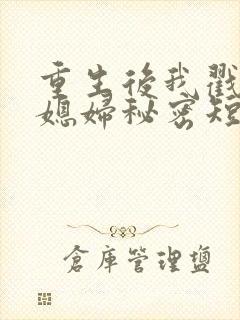 重生後我戳
媳婦秘密短
倉庫管理鹽